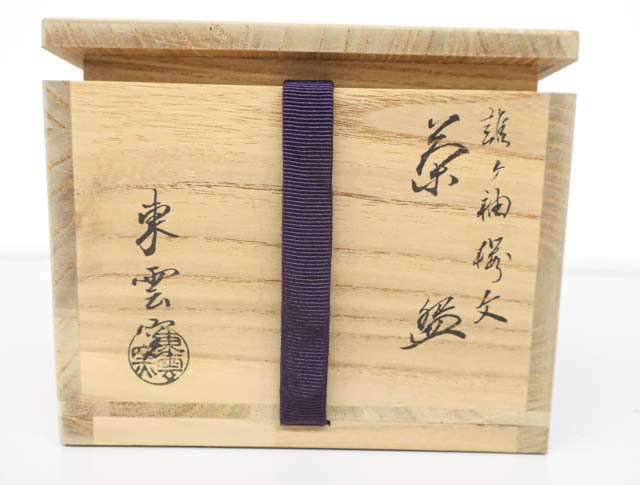 誰ヶ袖桜文
茶盌
東雲窯
東雲窯